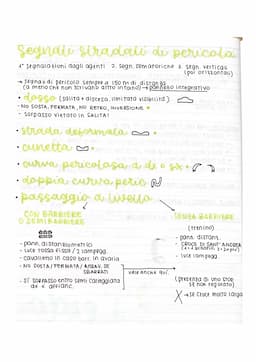 segnali stradali di pericolo
1° segnalazioni dagli agenti 2. segn. semaforiche 3. segn. verticali
(poi orizzontali)
→ segnali di pericolo sempre a 150 m di distanza
(a meno che non scrivano altro intorno) → pannello integrativo
• dosso (salita + discesa, limitata visibilità)
- NO SOSTA, FERMATA, NO RETRO, INVERSIONE
- sorpasso vietato in SALITA!
• strada deformata
• cunetta
• curva pericolosa a d o sx
• doppia curva peric
• passaggio a livello
CON BARRIERE
O SEMIBARRIERE
SENZA BARRIERE
(trenino)
- pann. distanziometrici
- luce rossa fissa / 2 lampegg.
- cavalletto in caso barr. in avaria
- NO SOSTA / FERMATA / ABBAN. SE
SBARRATI
- SÌ SORPASSO entro semi careggiata
se x affianc.
VALE ANCHE QUI
- pann. distanz.
- CROCE DI SANT'ANDREA
- luce lampegg.
(presenza di una croce
se non regolato)
X → se croce molto larga